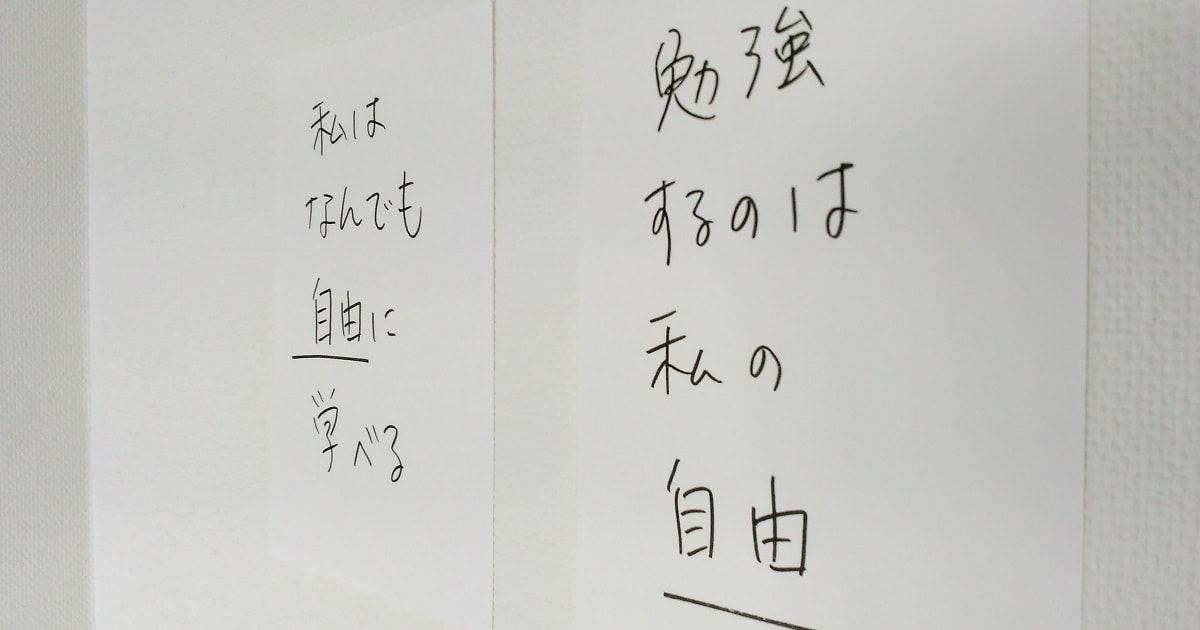 私は
なんでも
自由に
学べる
勉強
するのは
私の
自由